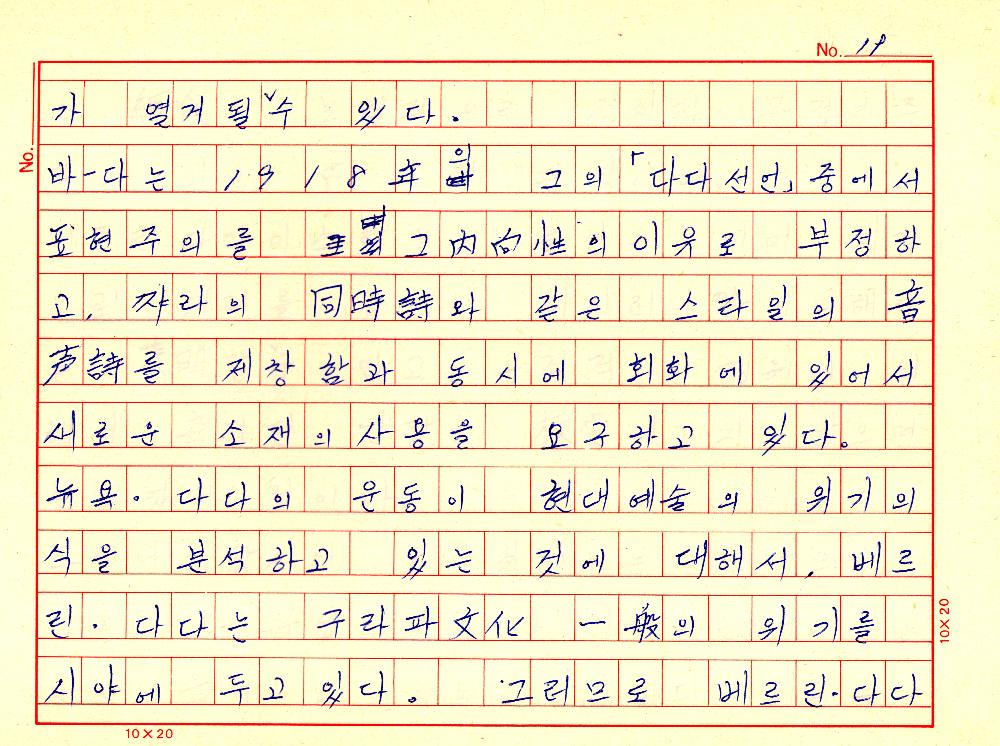 No. 19
No.
가 열거될 수 있다.
바-다는 1918年의 그의 「다다선언」중에서
표현주의를 그内向性의 이유로 부정하
고, 쨔라의 同時詩와 같은 스타일의 音
声詩를 제창함과 동시에 회화에 있어서
새로운 소재의 사용을 요구하고 있다.
뉴욕·다다의 운동이 현대예술의 위기의
식을 분석하고 있는 것에 대해서, 베르
린·다다는 구라파文化 一般의 위기를
시야에 두고 있다. 그러므로 베르린·다다
10×20
10×20